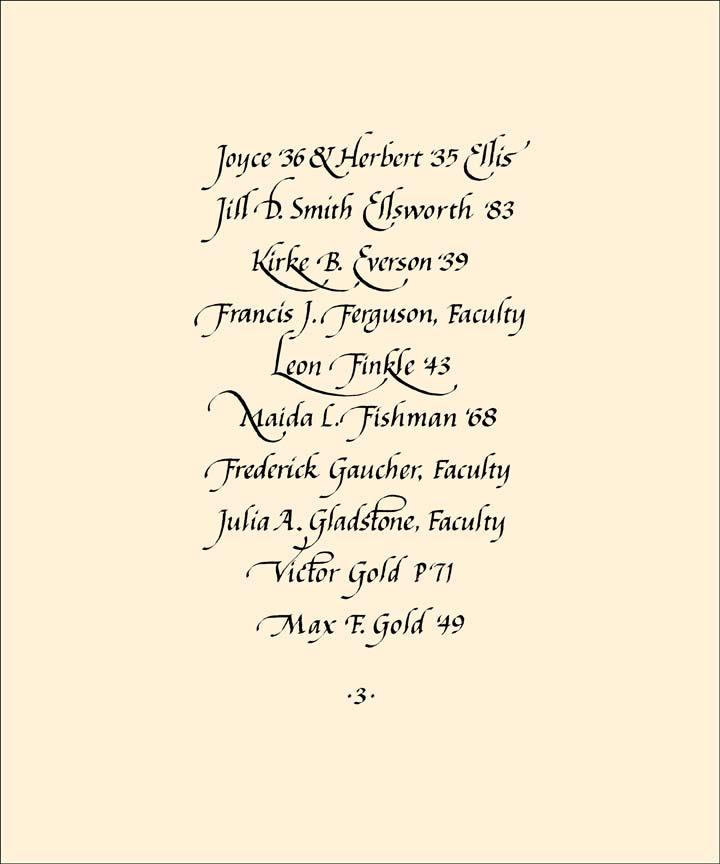 Joyce '36 & Herbert '35 Ellis
Jill D. Smith Ellsworth '83
Kirke B. Everson '39
Francis J. Ferguson, Faculty
Leon Finkle '43
Maida L. Fishman '68
Frederick Gaucher, Faculty
Julia A. Gladstone, Faculty
Victor Gold P'71
Max F. Gold '49
·3·